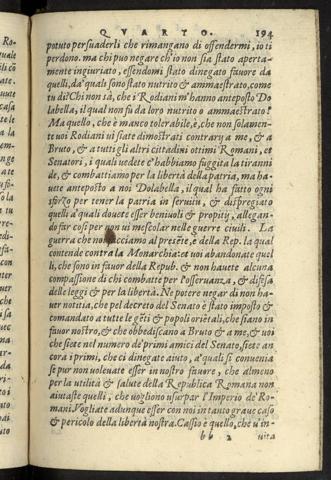 QVARTO. 194
potuto persuaderli che rimangano di offendermi, io ti
perdono. ma chi puo negare ch'io non sia stato aperta-
mente ingiuriato, essendomi stato dinegato fauore da
quelli, da' quali sono stato nutrito & ammaestrato, come
tu di? Chi non sà, che i Rodiani m'hanno anteposto Do
labella, il qual non fu da loro nutrito o ammaestrato?
Ma quello, che è manco tolerabile, è, che non solamen-
te uoi Rodiani ui siate dimostrati contrary a me, & a
Bruto, & a tutti gli altri cittadini ottimi Romani, et
Senatori, i quali uedete c'habbiamo fuggita la tiranni
de, & combattiamo per la libertà della patria, ma ha-
uete anteposto a noi Dolabella, il qual ha fatto ogni
sforzo per tener la patria in seruitù, & dispregiato
quelli a' quali douete esser beniuoli & propitij, allegan-
do far cosi per non ui mescolar nelle guerre ciuili. La
guerra che noi facciamo al presẽte, è della Rep. la qual
contende contra la Monarchia: et uoi abandonate quel
li, che sono in fauor della Repub. & non hauete alcuna
compassione di chi combatte per l'osseruanza, & difesa
delle leggi & per la libertà. Ne potere negar di non ha-
uer notitia, che pel decreto del Senato è stato imposto &
comandato a tutte le gẽti & popoli oriẽtali, che siano in
fauor nostro, & che obbediscano a Bruto & a me, & uoi
che siete nel numero de' primi amici del Senato, siete an
cora i primi, che ci dinegate aiuto, a' quali si conuenia
se pur non uoleuate esser in nostro fauore, che almeno
per la utilità & salute della Republica Romana non
aiutaste quelli, che uogliono usurpar l'Imperio de' Ro-
mani. Vogliate adunque esser con noi in tanto graue caso
& pericolo della libertà nostra. Cassio è quello, che u'in-
bb 2 uita